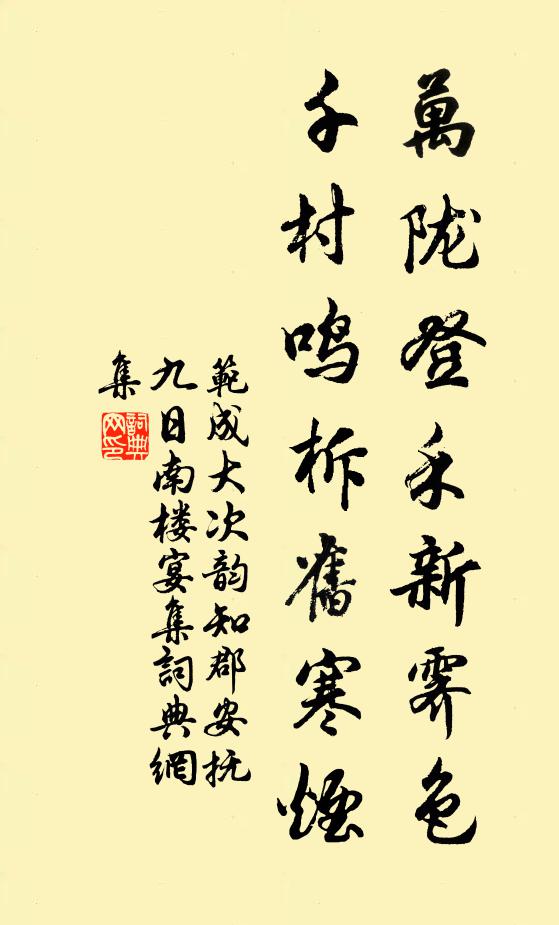 萬陇登禾新霽色
千村鸣柝舊寒煙
範成大次韵知郡安抚
九日南楼宴集詞典網
集
詞典网印